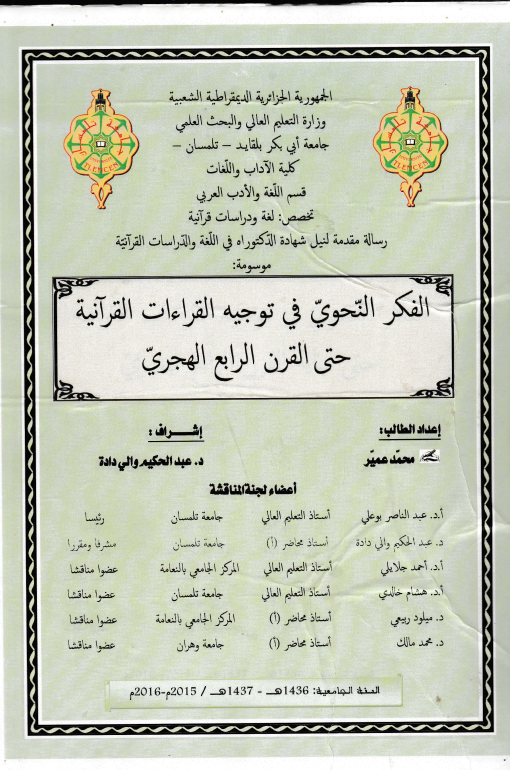 الجمهورية الجزائرية الديمقراطية الشعبية
وزارة التعليم العالي والبحث العلمي
جامعة أبي بكر بلقايد – تلمسان –
كلية الآداب واللّغات
قسم اللّغة والأدب العربي
تخصص: لغة ودراسات قرآنية
رسالة مقدمة لنيل شهادة الدّكتوراه في اللّغة والدّراسات القرآنيّة
موسومة:
الفكر النّحويّ في توجيه القراءات القرآنية
حتى القرن الرابع الهجريّ
إعداد الطالب: إشــراف:
محمّد عميّر د. عبد الحكيم والي دادة
أعضاء لجنة المناقشة
أ.د. عبد الناصر بوعلي أستاذ التعليم العالي جامعة تلمسان رئيسا
د. عبد الحكيم والي دادة أستاذ محاضر (أ) جامعة تلمسان مشرفا ومقررا
أ.د. أحمد جلايلي أستاذ التعليم العالي المركز الجامعي بالنعامة عضوا مناقشا
أ.د. هشام خالدي أستاذ التعليم العالي جامعة تلمسان عضوا مناقشا
د. ميلود ربيعي أستاذ محاضر (أ) المركز الجامعي بالنعامة عضوا مناقشا
د. محمد مالك أستاذ محاضر (أ) جامعة وهران عضوا مناقشا
السنة الجامعية: 1436هـ - 1437هـ / 2015م-2016م